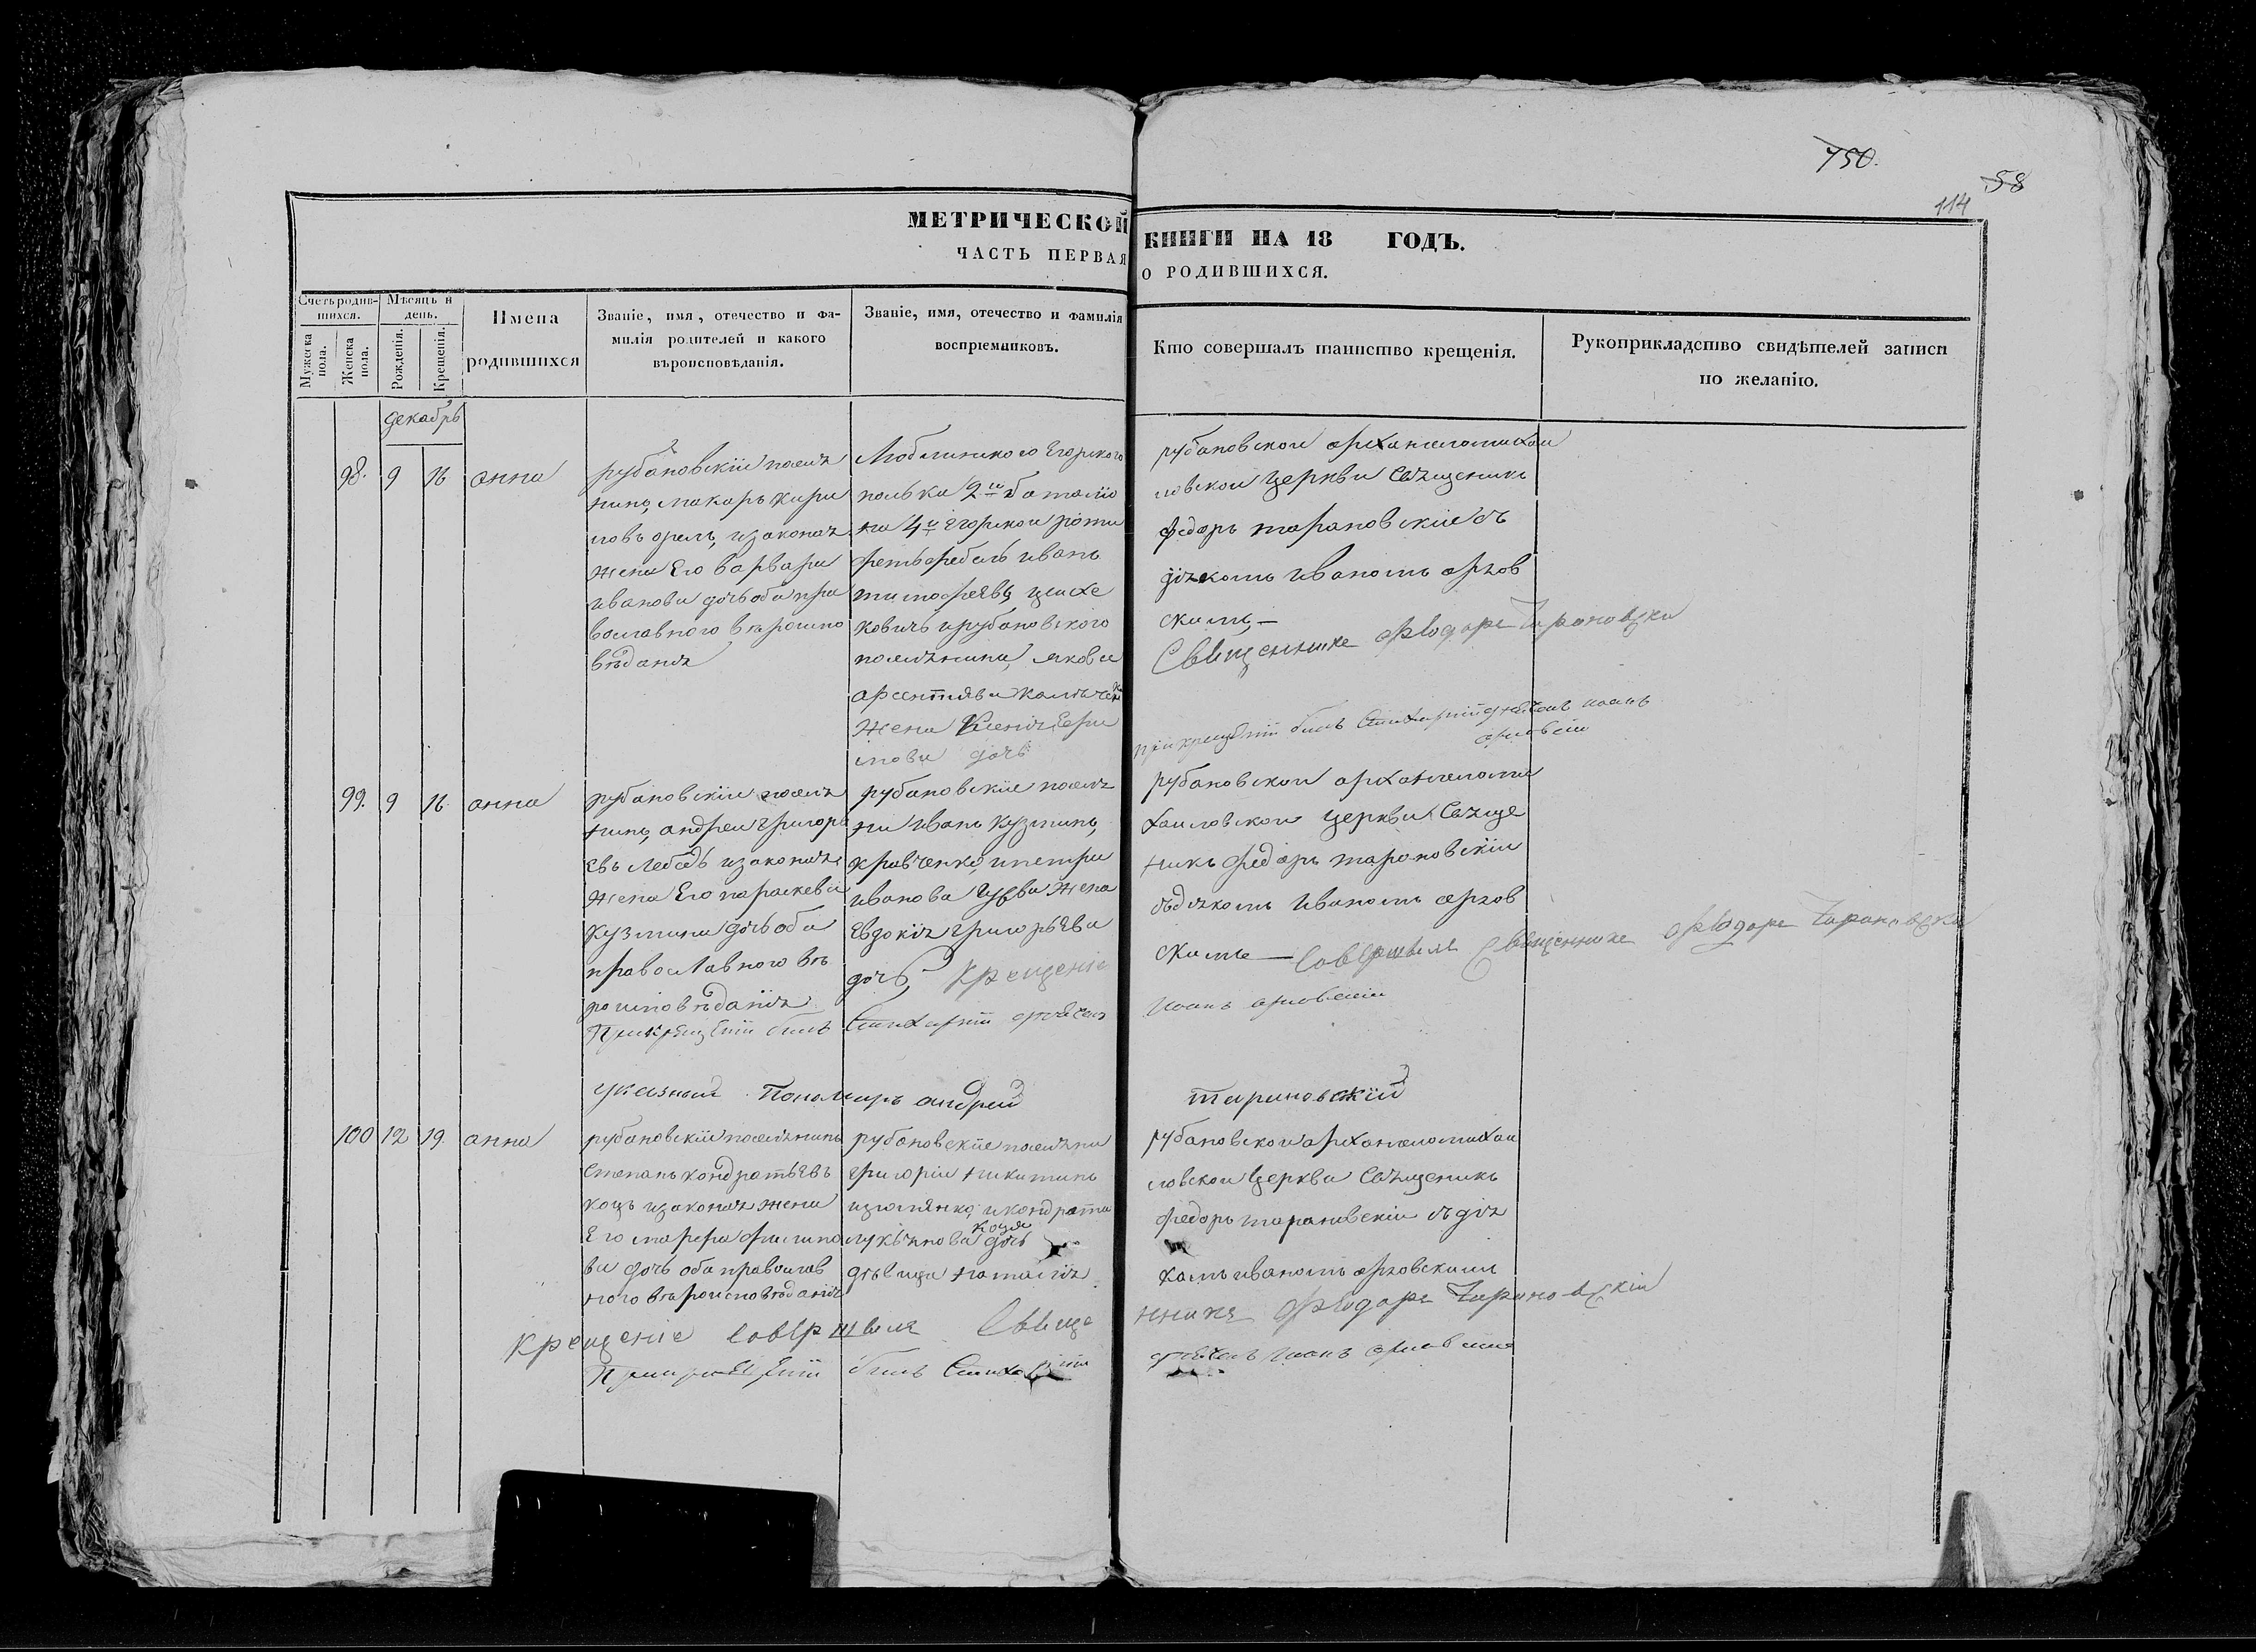 750.
58
114
МЕТРИЧЕСКОЙ КНИГИ НА 18 ГОДЪ.
ЧАСТЬ ПЕРВАЯ О РОДИВШИХСЯ.
Счетъ родив-
шихся.
Мужеска пола.
Женска пола.
Мѣсяцъ и
день.
Рожденія.
Крещенія.
Имена
родившихся
Званіе, имя, отечество и фа-
милія родителей и какого
вѣроисповѣданія.
Званіе, имя, отечество и фамилія
воспріемниковъ.
Кто совершалъ таинство крещенія.
Рукоприкладство свидѣтелей записи
по желанію.
декабрь
98. 9 16 анна
рубановскій посѧлѧ
нинъ, макаръ кири
ловъ орелъ, изаконаѧ
жена Его варвара
иванова дочь оба пра
вославного вѣроиспо
вѣданиѧ
Егорского
полька 2го баталіо
на 4й Егорской роти
фетьфебель иванъ
тимофѣевъ
ковичъ ирубановского
поселѧнина, якова
арсентіева
жена Ксеніѧ
дочь
рубановской архангеломихаи
ловской церкви Свѧщеникъ
федоръ тарановскіи съ
дѧкомъ иваномъ орлов
скимъ, —
Священникъ Ѳеодоръ Тарановскі
при крещеніи былъ Стихарній дьячокъ иоанъ
орловскій
99. 9 16 анна
рубановскіи поселѧ
нинъ, андреи григорь
евъ лебедь изаконаѧ
жена Его параскева
кузмина дочь оба
православного вѣ
роисповѣданіѧ
рубановскіе поселѧ
ни иванъ кузминъ,
кравченко, ипетра
иванова жена
Евдокіѧ григорьева
дочь,
рубановской архангеломи
хаиловской церкви Свѧще
никъ федоръ тарановскіи
съдѧкомъ иваномъ орлов
скимъ —
Крещеніе Совершилъ Священникъ Ѳеодоръ Тарановскі
При крещеніи былъ Стихарній дьячокъ иоанъ орловскій
указный Пономарь андрей тарановскій
100 12 19. анна
рубановскіи поселѧнинъ
степанъ кондратьевъ
коцъ изаконаѧ жена
Его марфа филипо
ва дочь оба православ
ного вѣроисповѣданіѧ
рубановскіе поселѧни
григоріи никитинъ
изюмѧнко, икондрата
лукѧнова коца дочь
дѣвица наталіѧ
рубановской архангеломихаи
ловской церкви Свѧщеникъ
федоръ тарановскіи съ дѧ
комъ иваномъ орловскимъ
крещеніе Совершилъ Священникъ Ѳеодоръ Тарановскій
При крещеніи былъ Стихарній дьячокъ иоанъ орловскій